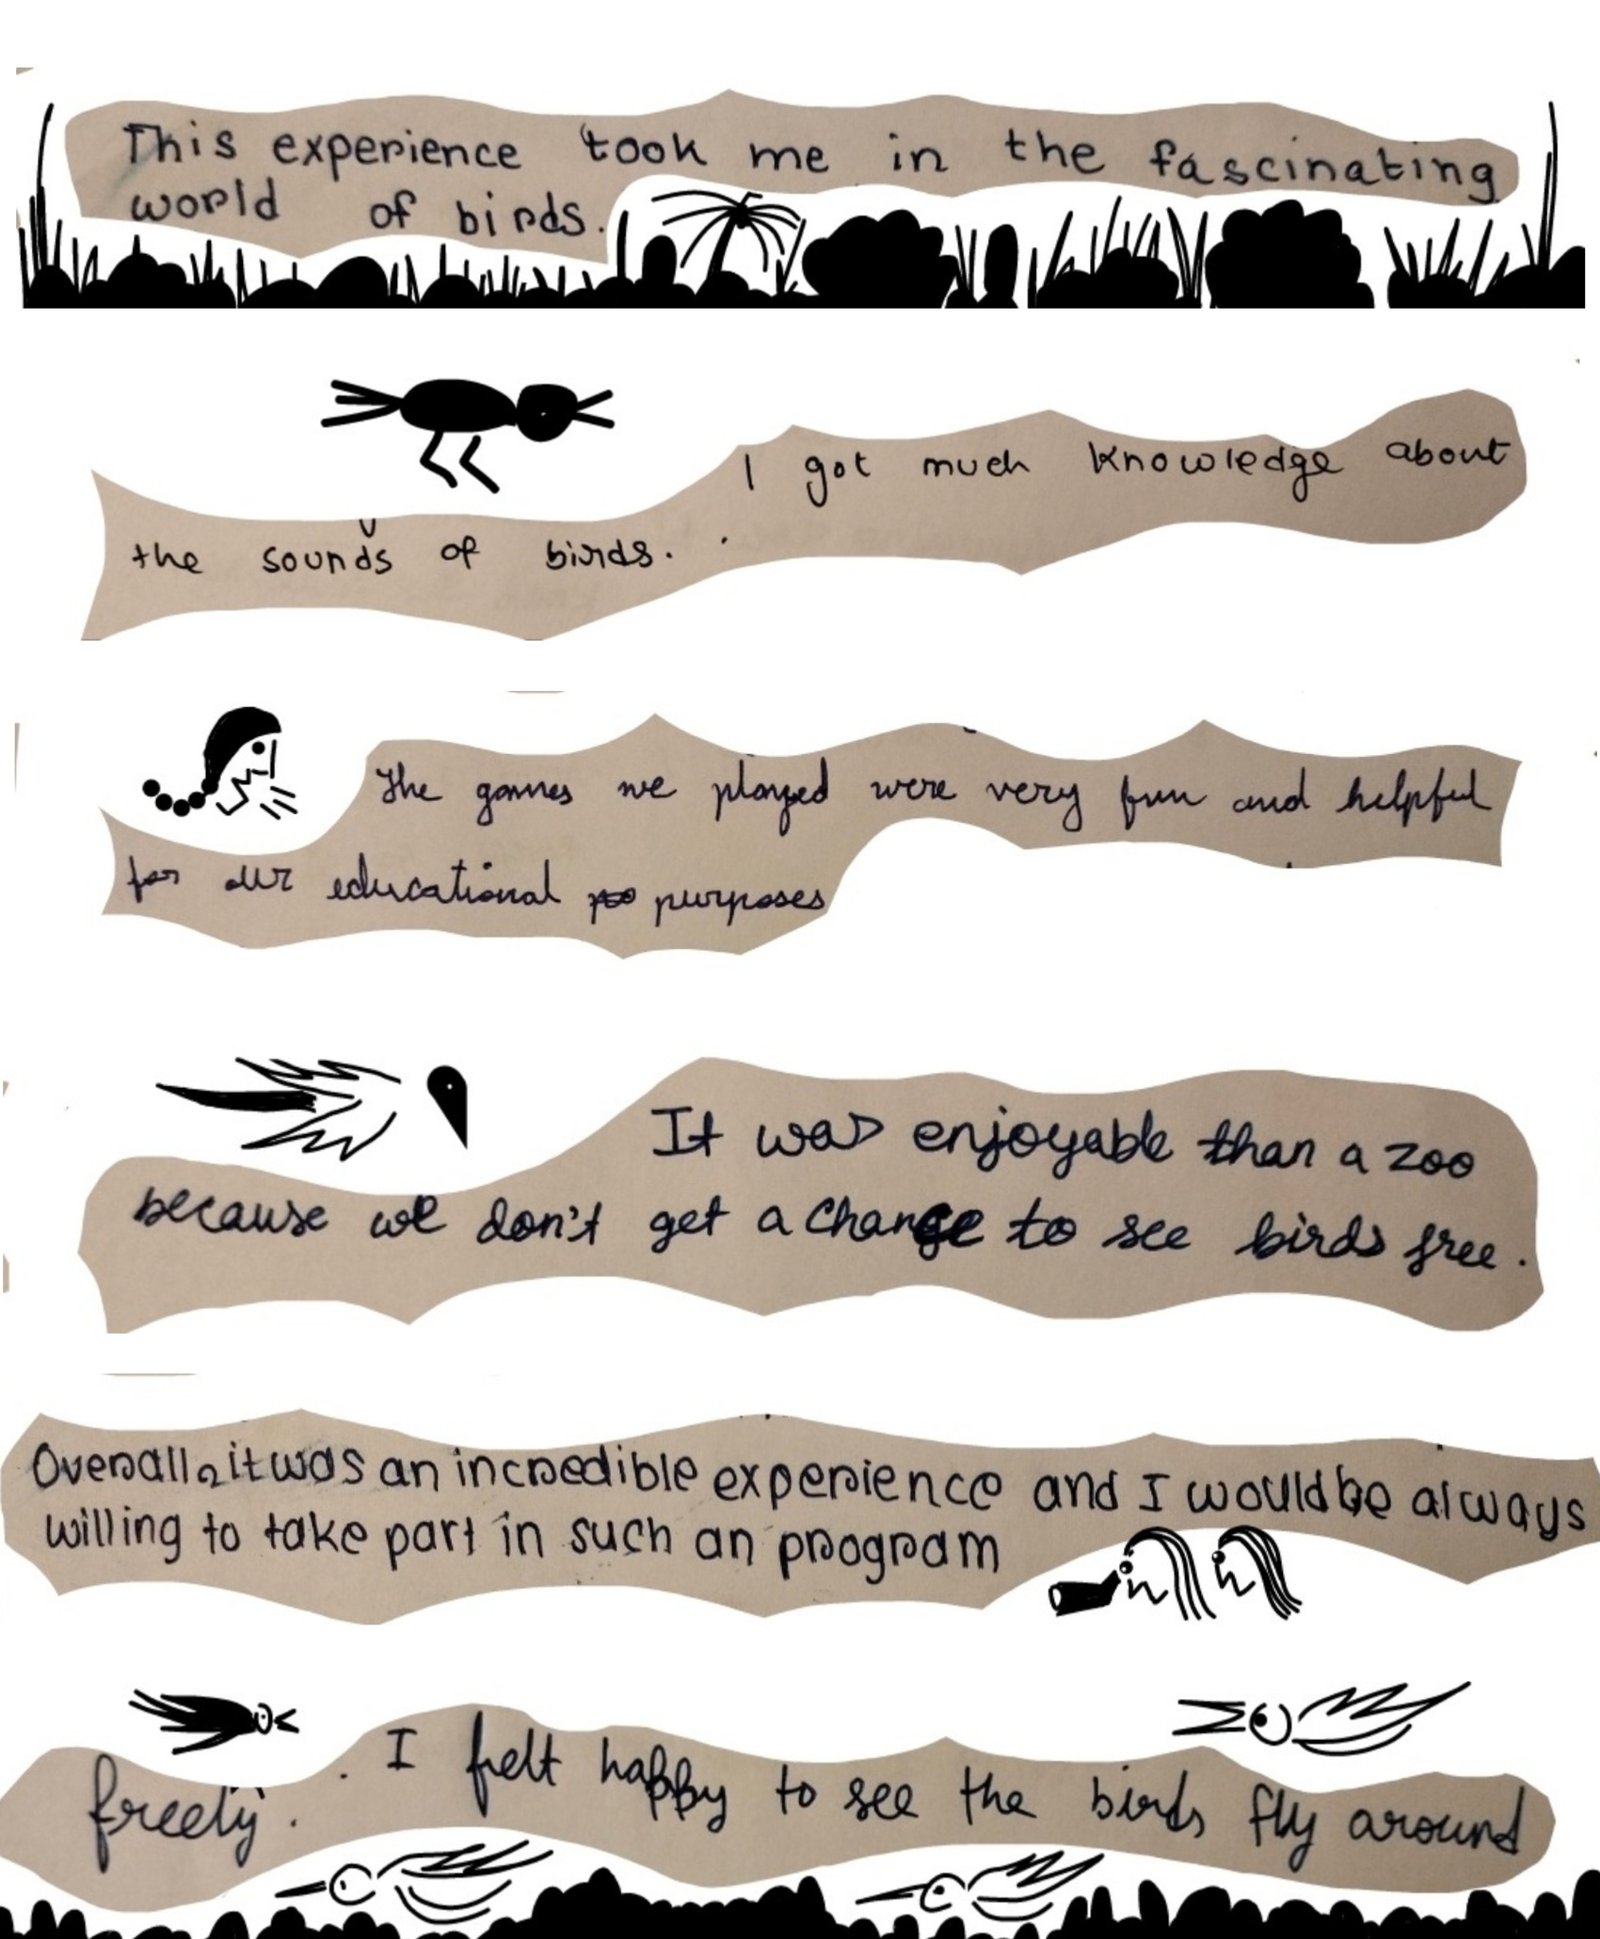 This experience took me in the fascinating
world of birds.
I got much knowledge about
the sounds of birds.
The games we played were very fun and helpful
for our educational purposes
It was enjoyable than a zoo
because we don't get a change to see birds free.
Overall, it was an incredible experience and I would be always
willing to take part in such an program
I felt happy to see the birds fly around
freely.